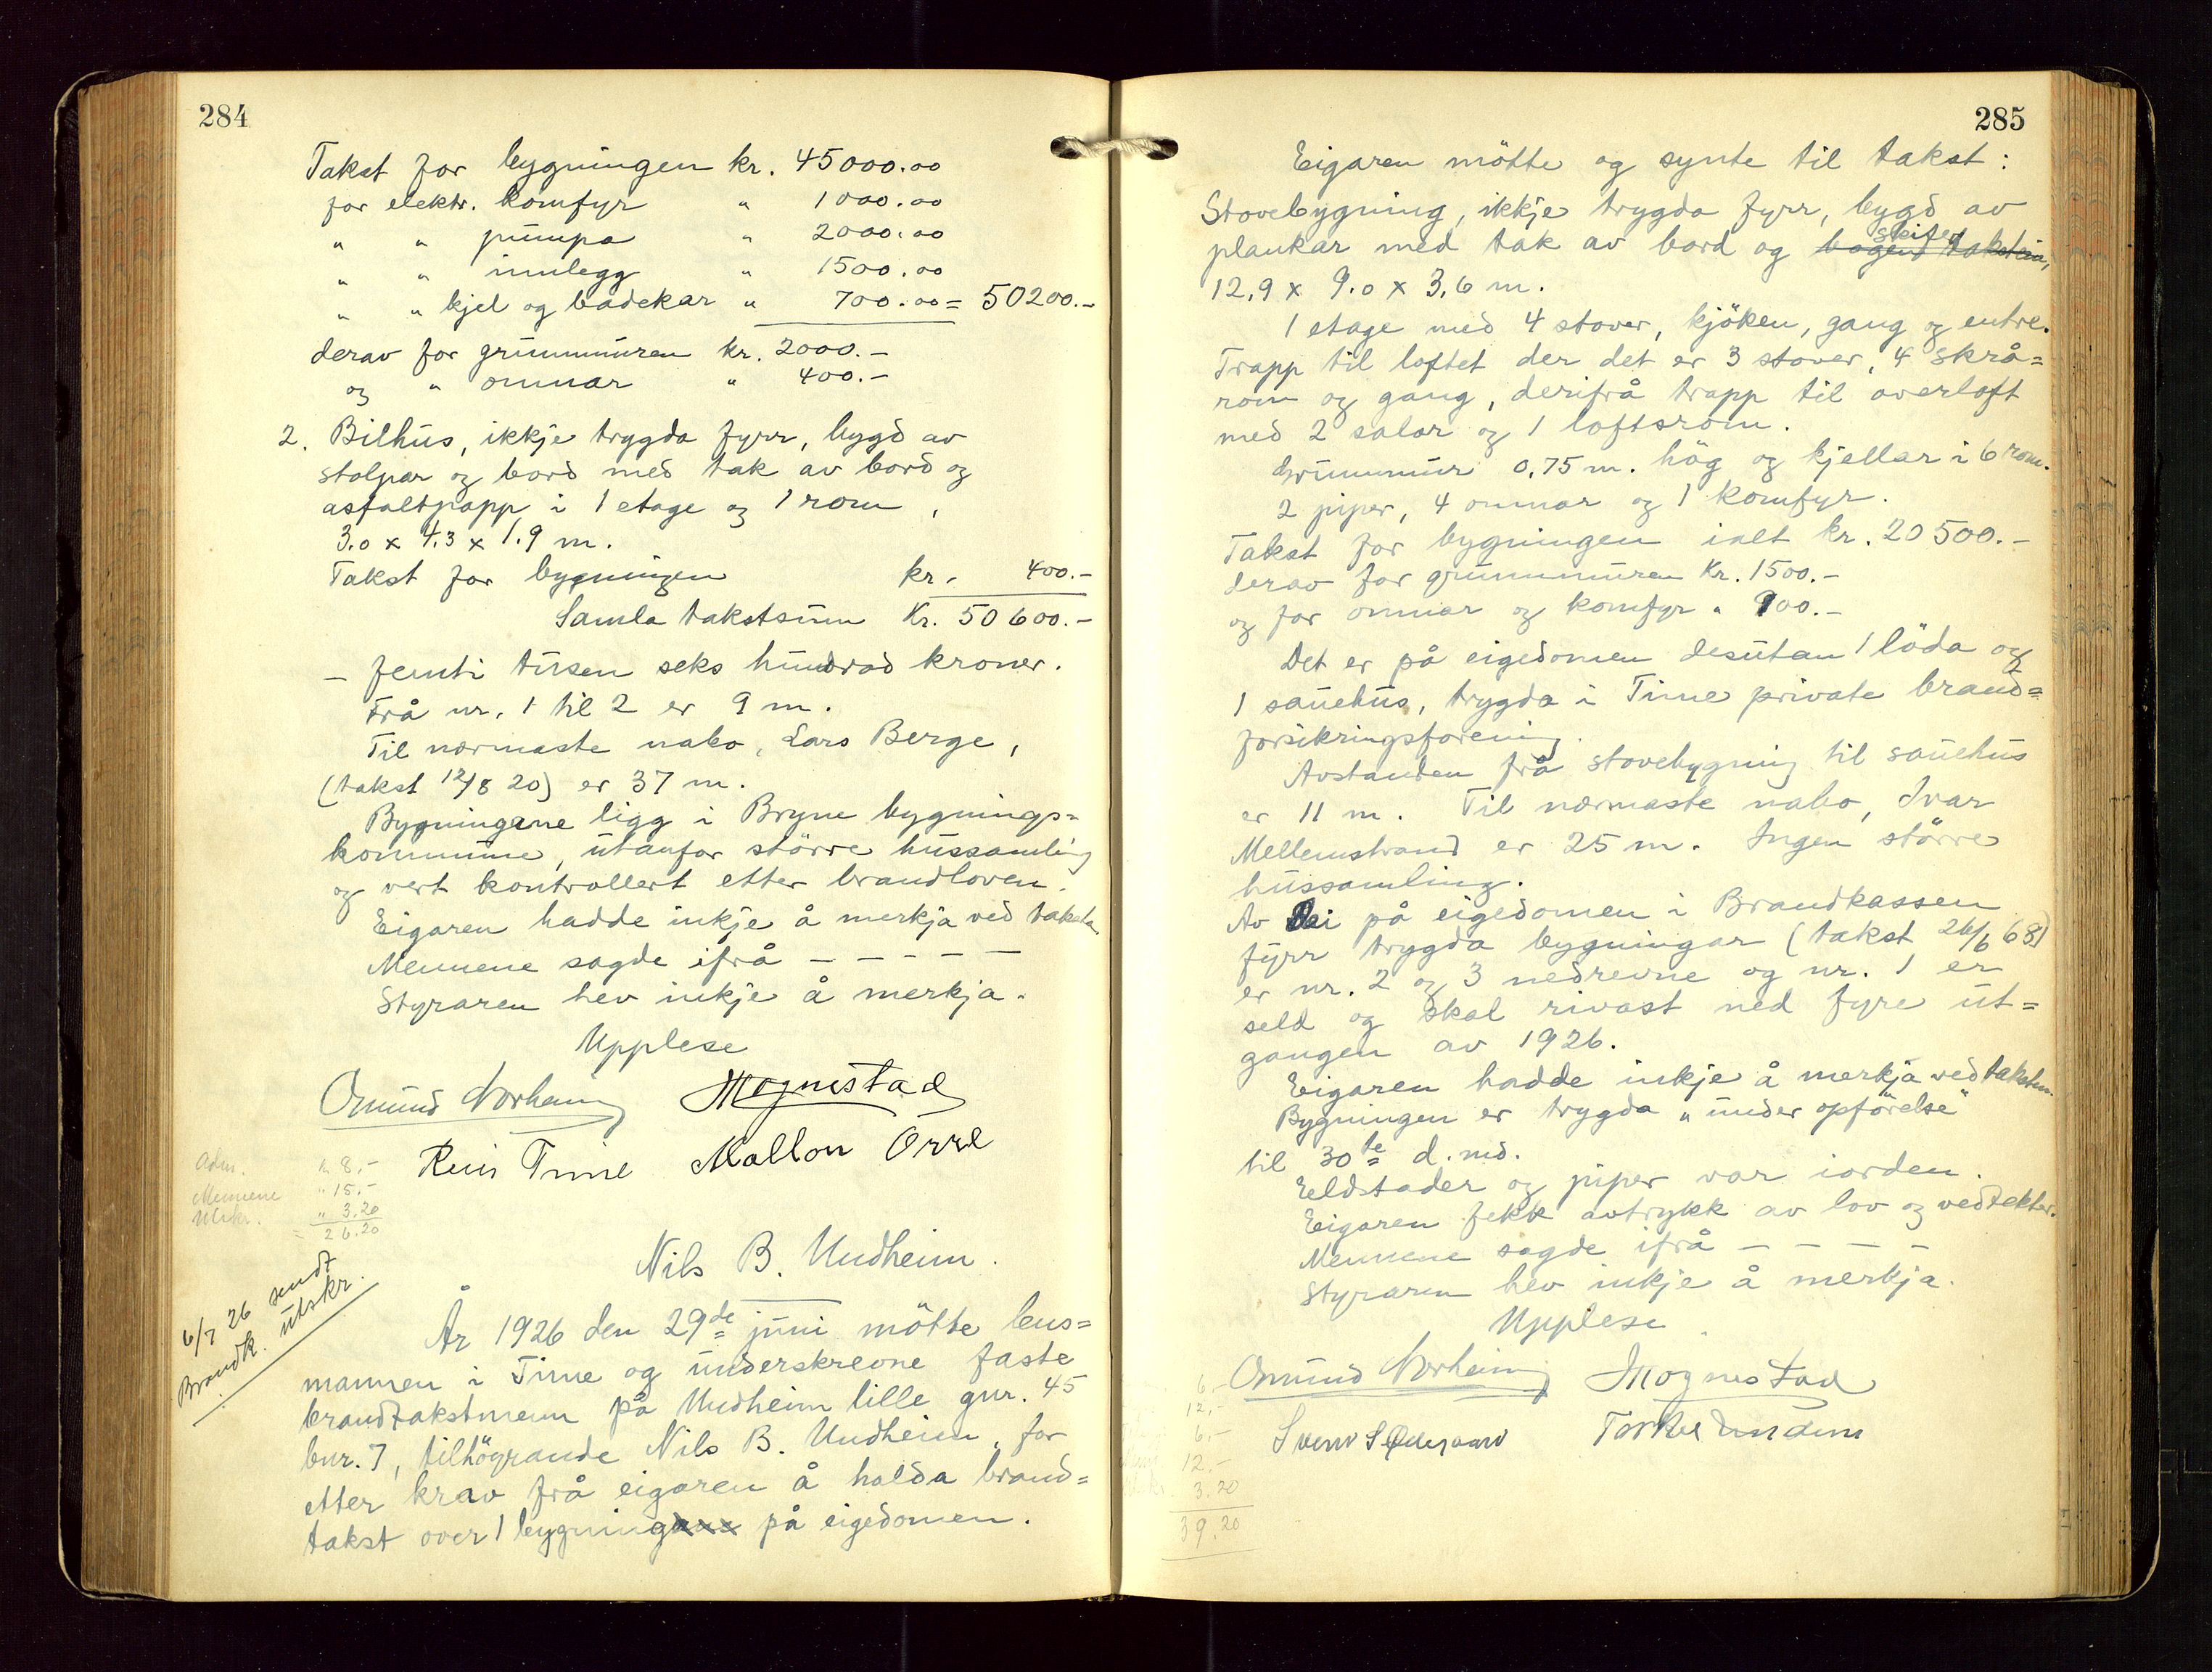 284
Takst for bygningen kr. 45000.00
for elektr. komfyr " 1000.00
" " pumpa " 2000.00
" " innlegg " 1500.00
" " kjel og badekar " 700.00 = 50200.-
derav for grunnmuren kr. 2000.-
og " omnar " 400.-
2. Bilhus, ikkje trygda fyrr, bygd av
stolpar og bord med tak av bord og
asfaltpapp i 1 etage og 1 rom,
3.0 x 4.3 x 1.9 m.
Takst for bygningen kr. 400.-
Samla takstsum Kr. 50600.-
- femti tusen seks hundrad kroner.
Frå nr. 1 til 2 er 9 m.
Til nærmaste nabo, Lars Berge,
(takst 12/8 20) er 37 m.
Bygningane ligg i Bryne bygnings=
kommune, utanfor större hussamling
og vert kontrollert etter brandloven.
Eigaren hadde inkje å merkja ved taksta.
Mennene sagde ifrå - - - - -
Styraren hev inkje å merkja.
Upplese
Omund Norheim Mognestad
Rein Time Mallon Orre
Adm. kr 8,-
Mennene " 15.-
Utskr. " 3.20
= 26.20
Nils B. Undheim.
6/7 26 sendt
Brandk. utskr.
År 1926 den 29de juni mötte lens=
mannen i Time og underskrevne faste
brandtakstmenn på Undheim lille gnr. 45
bnr. 7, tilhöyrande Nils B. Undheim, for
etter krav frå eigaren å halda brand=
takst over 1 bygningane på eigedomen.
285
Eigaren mötte og synte til takst:
Stovebygning, ikkje trygda fyrr, bygd av
plankar med tak av bord og skifer
12,9 x 9.0 x 3,6 m.
1 etage med 4 stover, kjöken, gang og entre.
Trapp til loftet der det er 3 stover, 4 skrå=
rom og gang, derifrå trapp til overloft
med 2 salar og 1 loftsrom.
Grunnmur 0,75 m. hög og kjellar i 6 rom.
2 piper, 4 omnar og 1 komfyr.
Takst for bygningen ialt kr. 20500.-
derav for grunnmuren Kr. 1500.-
og for omnar og komfyr " 900.-
Det er på eigedomen desutan 1 löda og
1 sauehus, trygda i Time private brand=
forsikringsforening.
Avstanden frå stovebygning til sauehus
er 11 m. Til nærmaste nabo, Ivar
Mellemstrand er 25 m. Ingen större
hussamling.
Av dei på eigedomen i Brandkassen
fyrr trygda bygningar (takst 26/6 68)
er nr. 2 og 3 nedrevne og nr. 1 er
seld og skal rivast ned fyre ut=
gangen av 1926.
Eigaren hadde inkje å merkja ved taksten.
Bygningen er trygda "under opförelse"
til 30te d. md.
Eeldstader og piper var iorden.
Eigaren fekk avtrykk av lov og vedtekter.
Mennene sagde ifrå - - - -
Styraren hev inkje å merkja.
Upplese
Omund Norheim Mognestad
Torkel Undem
6,-
12,-
6,-
12.-
3.20
39.20